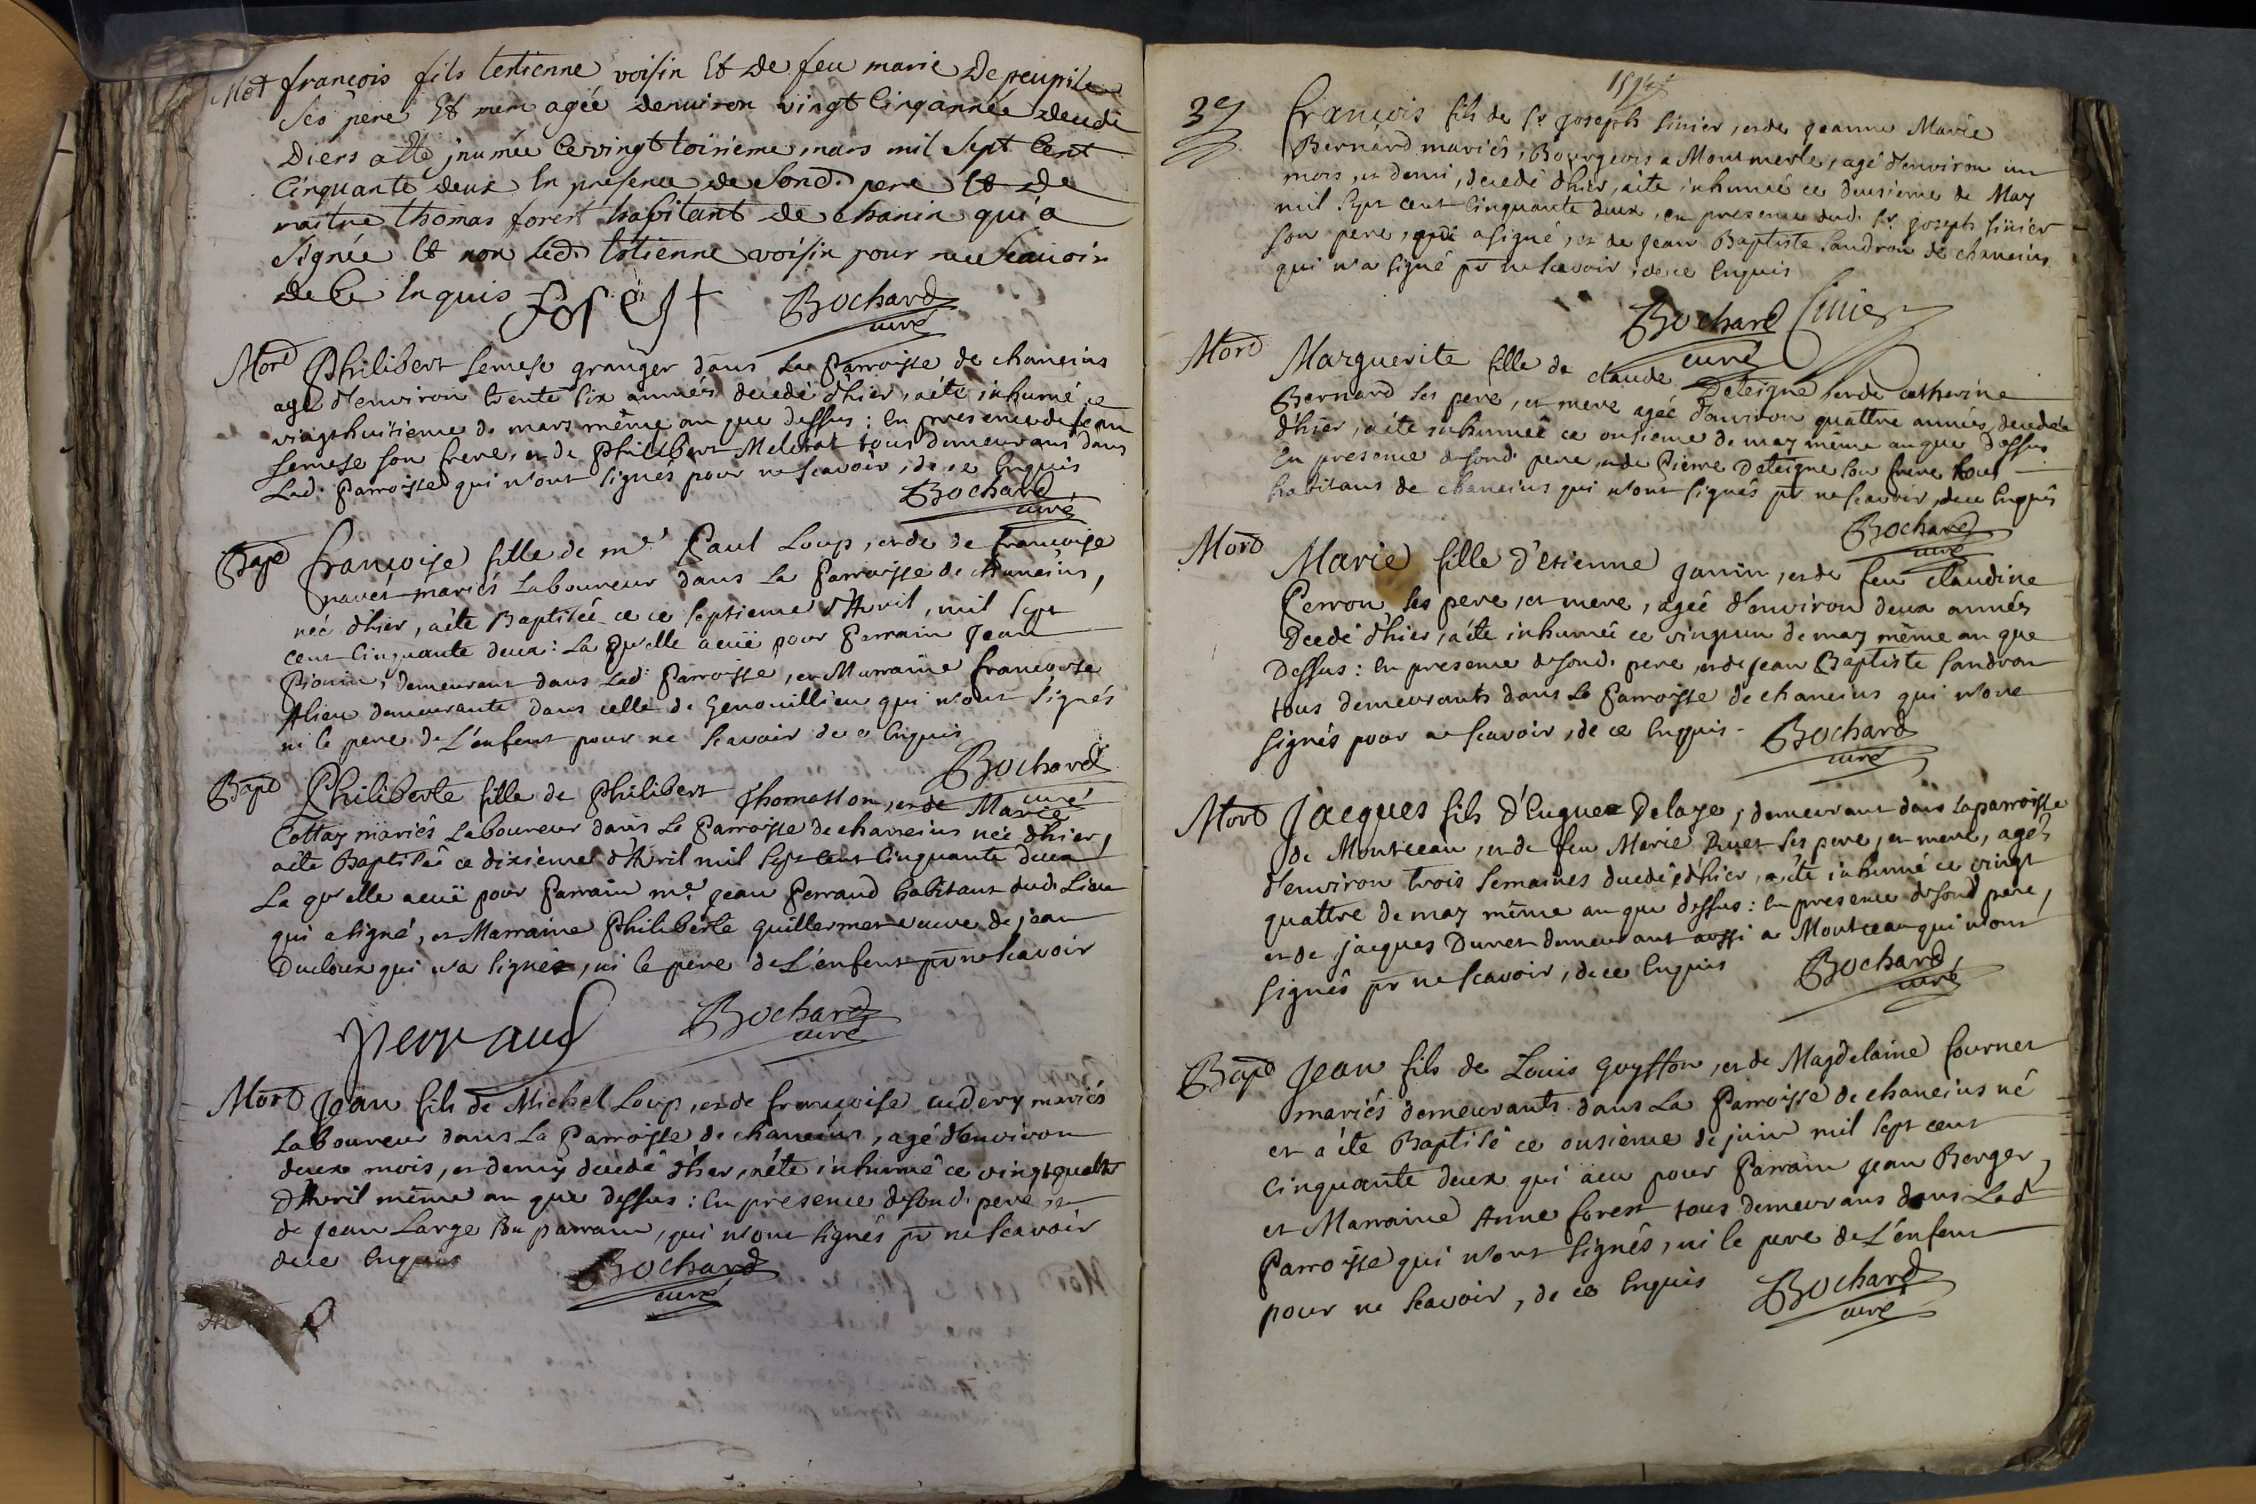 Mot françois fils testienne voisin Et de feu marie
ses pere Et mere agée denuiron vingt Cinq année
diers atté jnumée Ce vingt toisieme mars mil Sept Cent
Cinquante deux En presence de Sond. pere Et de
maitre thomas forest habitant de chanin qui a
Signée Et non Led. Estienne voisin pour ne Scauoir
de Ce Enquis forest Bochard
curé
Mort Philibert Semese granger dans La Parroisse de chaneins
agé d'environ trente six années decedé d'hier, a été inhumé ce
vingthuitieme de mars même an que dessus : En presence de jean
Semese son frere, et de Philibert tous demeurans dans
Lad. Parroisse qui n'ont signés pour ne scavoir, de ce Enquis
Bochard
curé
Bapt françoise fille de me. Paul Loup, et de de françoise
navet mariés Laboureur dans La Parroisse de chaneins,
née d'hier, a été Baptisée ce ce septieme d'Avril, mil sept
cent Cinquante deux : La qu'elle a eüe pour Parrain Jean
Pionin, demeurant dans Lad. Parroisse, et Marraine françoise
Alieu demeurante dans celle de Genouillieu qui n'ont signés
ni le pere de L'enfent pour ne scavoir de ce Enquis
Bochard
curé
Bapt Philiberte fille de Philibert Thomasson, et de Marie
Cottay mariés Laboureur dans Le Parroisse de chaneins née d'hier,
a été Baptisée ce dixieme d'Avril mil sept cent Cinquante deux
La qu'elle a eüe pour Parrain me. Jean Perraud habitant dud. Lieu
qui a signé, et Marraine Philiberte guillermet veuve de jean
Ducloux qui n'a signée, ni le pere de L'enfent pr ne scavoir
perraud Bochard
curé
Mort Jean fils de Michel Loup, et de françoise audery mariés
Laboureur dans La Parroisse de chaneins, agé d'environ
deux mois, et demy decedé d'hier, a été inhumé ce vingtquatre
d'Avril même an que dessus : En presence de sond. pere et
de jean Large son parrain, qui n'ont signés pr ne scavoir
de ce Enquis Bochard
curé
39
françois fils de sr. joseph Sinier, et de jeanne Marie
Bernard mariés, Bourgeois a Montmerle, agé d'environ un
mois, et demi, decedé d'hier, a été inhumé ce deuxieme de May
mil sept cent Cinquante deux, en presence dud. sr. joseph Sinier
son pere, qui a signé, et de Jean Baptiste Sandron de chaneins
qui n'a signé pr ne scavoir, de ce Enquis
Bochard Sinier
curé
Mort Marguerite fille de claude Deteigne, et de catherine
Bernard ses pere, et mere agée d'environ quattre années, decedée
d'hier, a été inhumée ce onsieme de may même an que dessus
En presence de sond. pere, et de Pierre Deteigne son frere tous
habitans de chaneins qui n'ont signés pr ne scavoir, de ce Enquis
Bochard
curé
Mort Marie fille d'etienne Janin, et de feu claudine
Perron ses pere, et mere, agée d'environ deux années
Decedé d'hier, a été inhumée ce vingtun de may même an que
Dessus : En presence de sond. pere, et de jean Baptiste Sandron
tous demeurants dans Le Parroisse de chaneins qui n'ont
signés pour ne scavoir, de ce Enquis - Bochard
curé
Mort Jacques fils d'Eugne Delaye, demeurant dans La parroisse
de Montceau, et de feu Marie Ruet ses pere, et mere, agé
d'environ trois semaines decedé d'hier, a été inhumé ce vingt
quattre de may même an que dessus : En presence de sond pere,
et de jacques Duret demeurant aussi a Montceau qui n'ont
signés pr ne scavoir, de ce Enquis Bochard
curé
Bapt Jean fils de Louis Guyffon, et de Magdelaine fournet
mariés demeurants dans La Parroisse de chaneins né
et a été Baptisé ce onsieme de juin mil sept cent
Cinquante deux qui a eu pour Parrain Jean Berger,
et Marraine Anne forest tous demeurans dans Lad
Parroisse qui n'ont signés, ni le pere de L'enfent
pour ne scavoir, de ce Enquis Bochard
curé